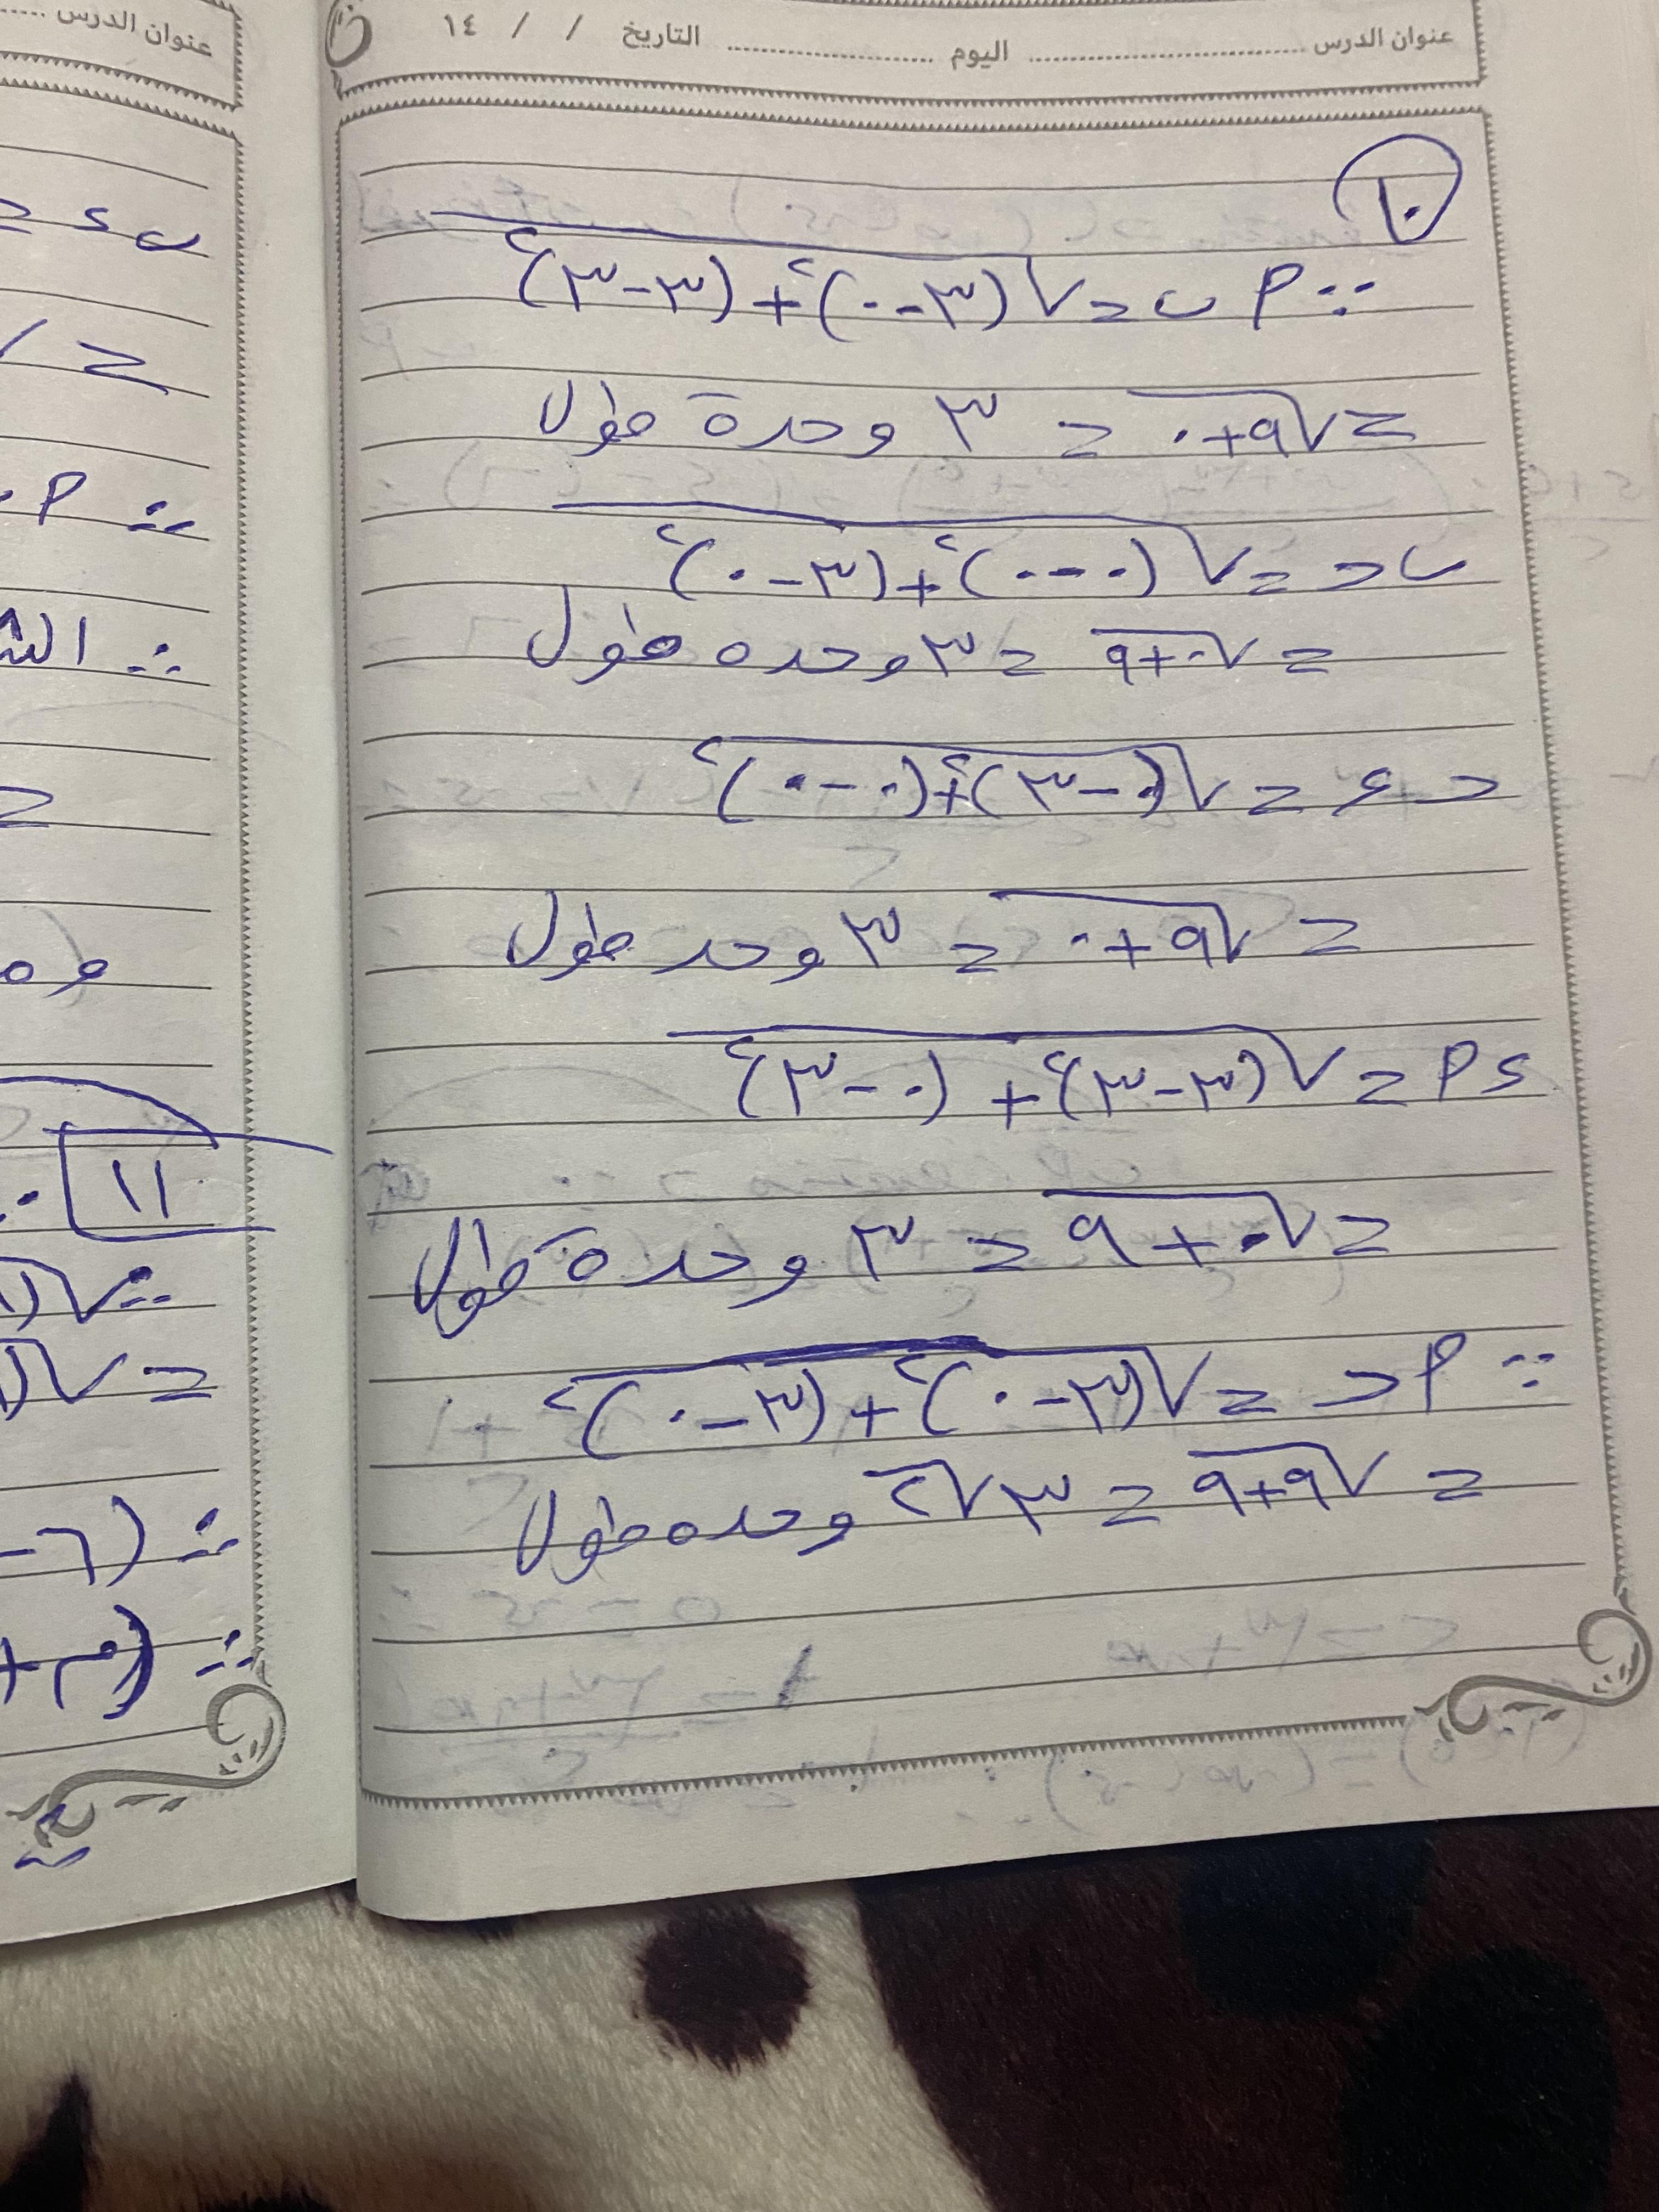 عنوان الدرس ............ اليوم ............ التاريخ / / ١٤
١٠
∵ أ ب = √(٣-٠)² + (٣-٣)²
= √٩+٠ = ٣ وحدة طول
ب ح = √(٠-٠)² + (٣-٠)²
= √٠+٩ = ٣ وحده طول
ح ء = √(٠-٣)² + (٠-٠)²
= √٩+٠ = ٣ وحد طول
ء أ = √(٣-٣)² + (٠-٣)²
= √٠+٩ = ٣ وحدة طول
∵ أ ح = √(٣-٠)² + (٣-٠)²
= √٩+٩ = ٣√٢ وحده طول
عنوان الدرس
ب ء =
= √
∵ أ
∴
=
١١
∵ √(
= √(
∵ (٦-
∵ (م+